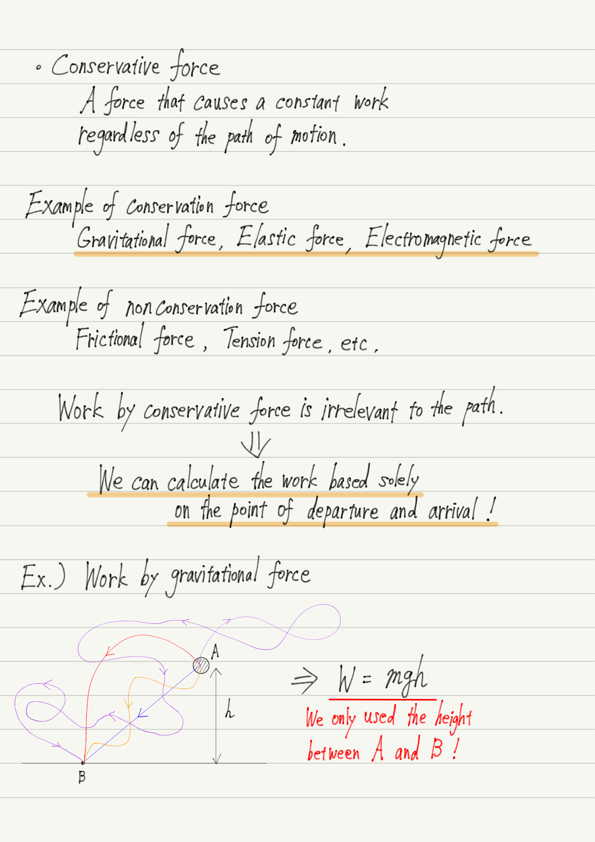 • Conservative force
A force that causes a constant work
regardless of the path of motion.
Example of conservation force
Gravitational force, Elastic force, Electromagnetic force
Example of nonconservation force
Frictional force, Tension force, etc.
Work by conservative force is irrelevant to the path.
⇓
We can calculate the work based solely
on the point of departure and arrival!
Ex.) Work by gravitational force
A
h
B
⇒ W = mgh
We only used the height
between A and B!